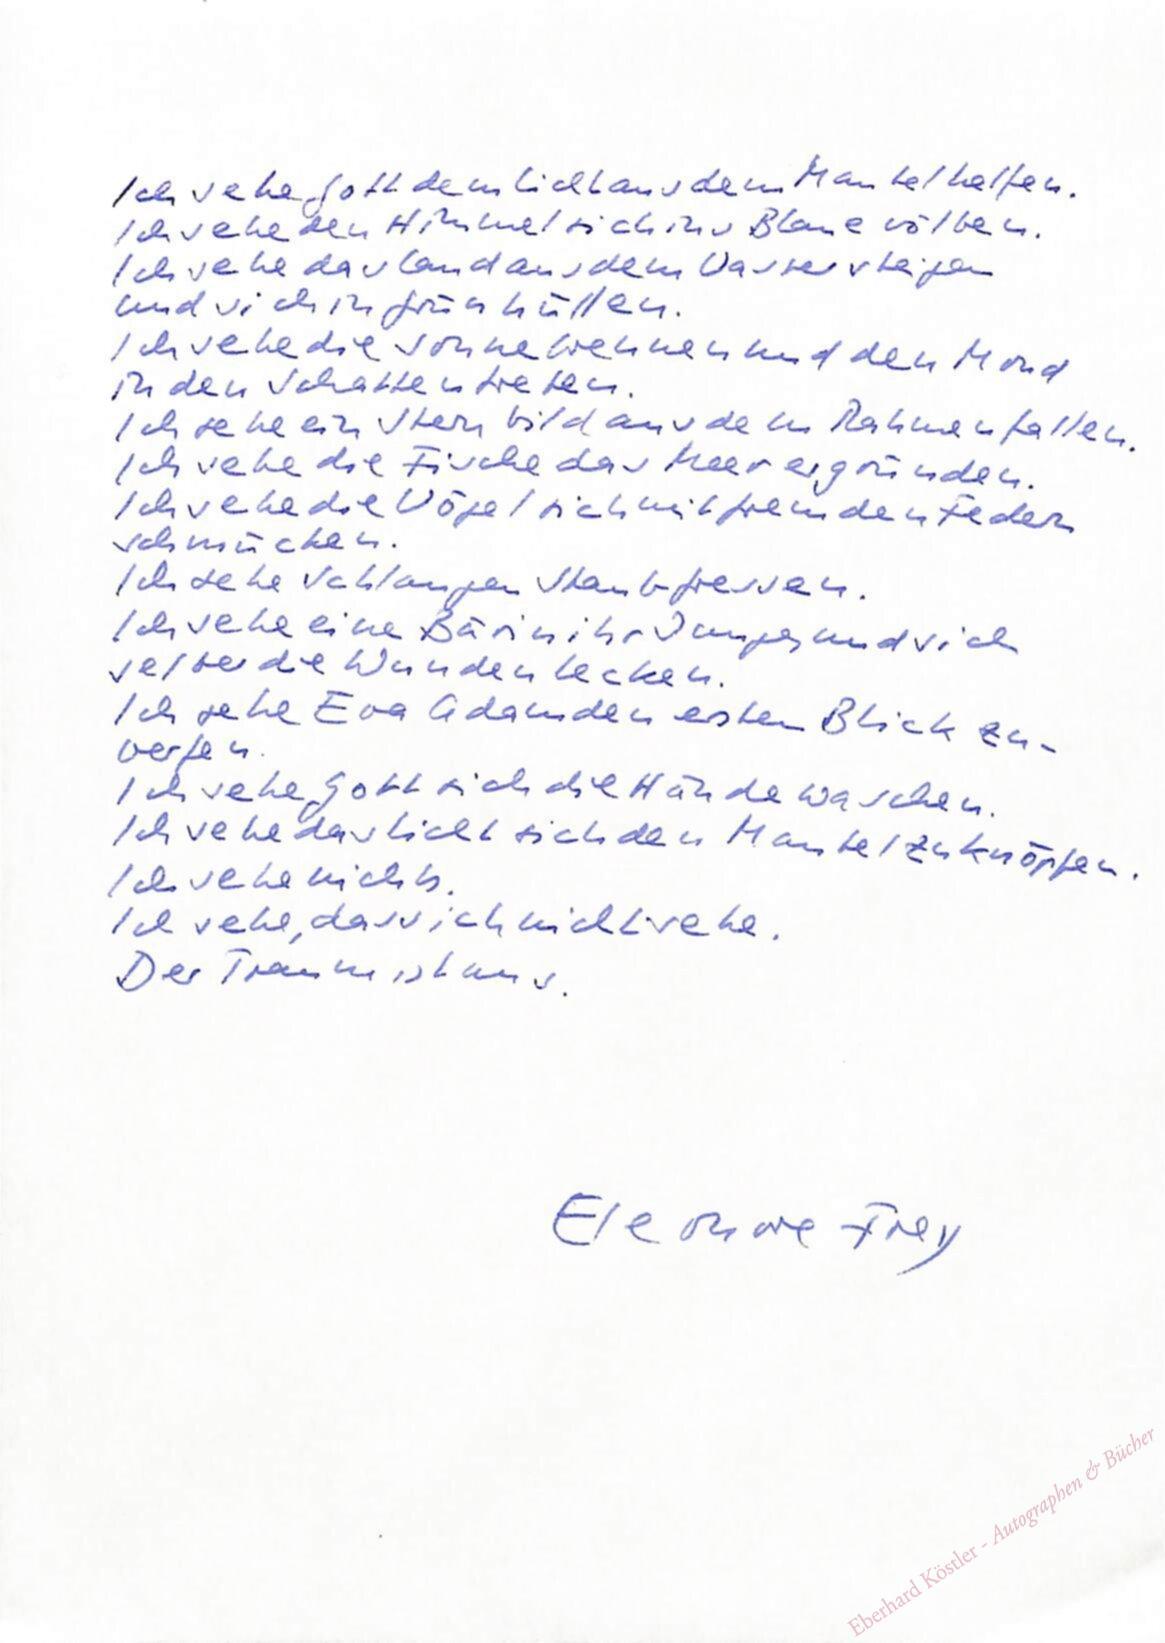 Ich sehe Gott dem Licht aus dem Mantel helfen.
Ich sehe den Himmel sich ins Blaue wölben.
Ich sehe das Land aus dem Wasser steigen
und sich in Grün hüllen.
Ich sehe die Sonne brennen und den Mond
in den Schatten treten.
Ich sehe ein Sternbild aus dem Rahmen fallen.
Ich sehe die Fische das Meer ergründen.
Ich sehe die Vögel sich mit fremden Federn
schmücken.
Ich sehe Schlangen Staub fressen.
Ich sehe eine Bärin ihr Junges und sich
selber die Wunden lecken.
Ich sehe Eva Adam den ersten Blick zu-
werfen.
Ich sehe Gott sich die Hände waschen.
Ich sehe das Licht sich den Mantel zuknöpfen.
Ich sehe nichts.
Ich sehe, dass ich nicht sehe.
Der Traum ist aus.
Eleonore Frey
Eberhard Köstler - Autographen & Bücher